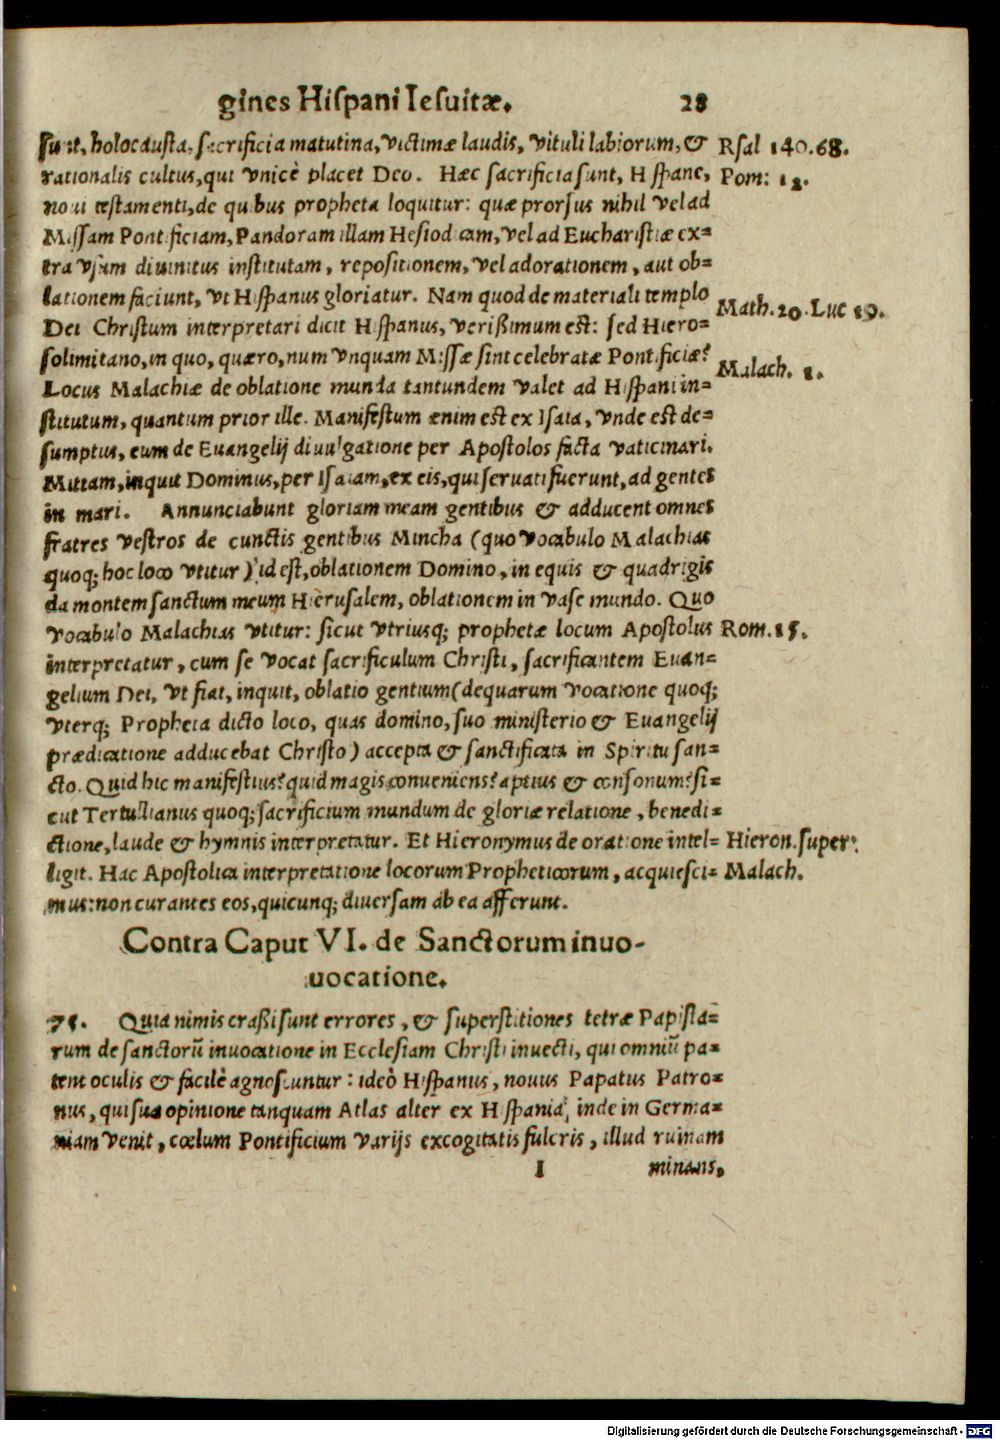 gines Hiſpani Ieſuitæ. 28
ſunt, holocauſta, ſacrificia matutina, victimæ laudis, vituli labiorum, & Rſal 140.68.
rationalis cultus, qui vnicè placet Deo. Hæc ſacrificia ſunt, Hiſpane, Pom: 12.
noui teſtamenti, de quibus propheta loquitur: quæ prorſus nihil vel ad
Miſſam Pontificiam, Pandoram illam Heſiodicam, vel ad Euchariſtiæ ex=
tra vſum diuinitus inſtitutam, repoſitionem, vel adorationem, aut ob=
lationem faciunt, vt Hiſpanus gloriatur. Nam quod de materiali templo Math. 20. Luc 19.
Dei Chriſtum interpretari dicit Hiſpanus, verißimum eſt: ſed Hiero=
ſolimitano, in quo, quæro, num vnquam Miſſæ ſint celebratæ Pontificiæ?
Locus Malachiæ de oblatione munda tantundem valet ad Hiſpani in= Malach. 1.
ſtitutum, quantum prior ille. Manifeſtum ænim eſt ex Iſaia, vnde eſt de=
ſumptus, eum de Euangelij diuulgatione per Apoſtolos facta vaticinari.
Mittam, inquit Dominus, per Iſaiam, ex eis, qui ſeruati fuerunt, ad gentes
in mari. Annunciabunt gloriam meam gentibus & adducent omnes
fratres veſtros de cunctis gentibus Mincha (quo vocabulo Malachias
quoq; hoc loco vtitur) id eſt, oblationem Domino, in equis & quadrigis
da montem ſanctum meum Hieruſalem, oblationem in vaſe mundo. Quo
vocabulo Malachias vtitur: ſicut vtriusq; prophetæ locum Apoſtolus Rom. 15.
interpretatur, cum ſe vocat ſacrificulum Chriſti, ſacrificantem Euan=
gelium Dei, vt fiat, inquit, oblatio gentium (de quarum vocatione quoq;
vterq; Propheta dicto loco, quas domino, ſuo miniſterio & Euangelij
prædicatione adducebat Chriſto) accepta & ſanctificata in Spiritu ſan=
cto. Quid hic manifeſtius? quid magis conueniens? aptius & conſonum? ſi=
cut Tertullianus quoq; ſacrificium mundum de gloriæ relatione, benedi=
ctione, laude & hymnis interpretatur. Et Hieronymus de oratione intel= Hieron. ſuper
ligit. Hac Apoſtolica interpretatione locorum Propheticorum, acquieſci= Malach.
mus: non curantes eos, quicunq; diuerſam ab ea afferunt.
Contra Caput VI. de Sanctorum inuo-
uocatione.
75. Quia nimis craßi ſunt errores, & ſuperſtitiones tetræ Papiſta=
rum de ſanctorū inuocatione in Eccleſiam Chriſti inuecti, qui omniū pa=
tent oculis & facilè agnoſcuntur: ideò Hiſpanus, nouus Papatus Patro=
nus, qui ſua opinione tanquam Atlas alter ex Hiſpania, inde in Germa=
niam venit, cœlum Pontificium varijs excogitatis fulcris, illud ruinam
I minans,
Digitalisierung gefördert durch die Deutsche Forschungsgemeinschaft - DFG